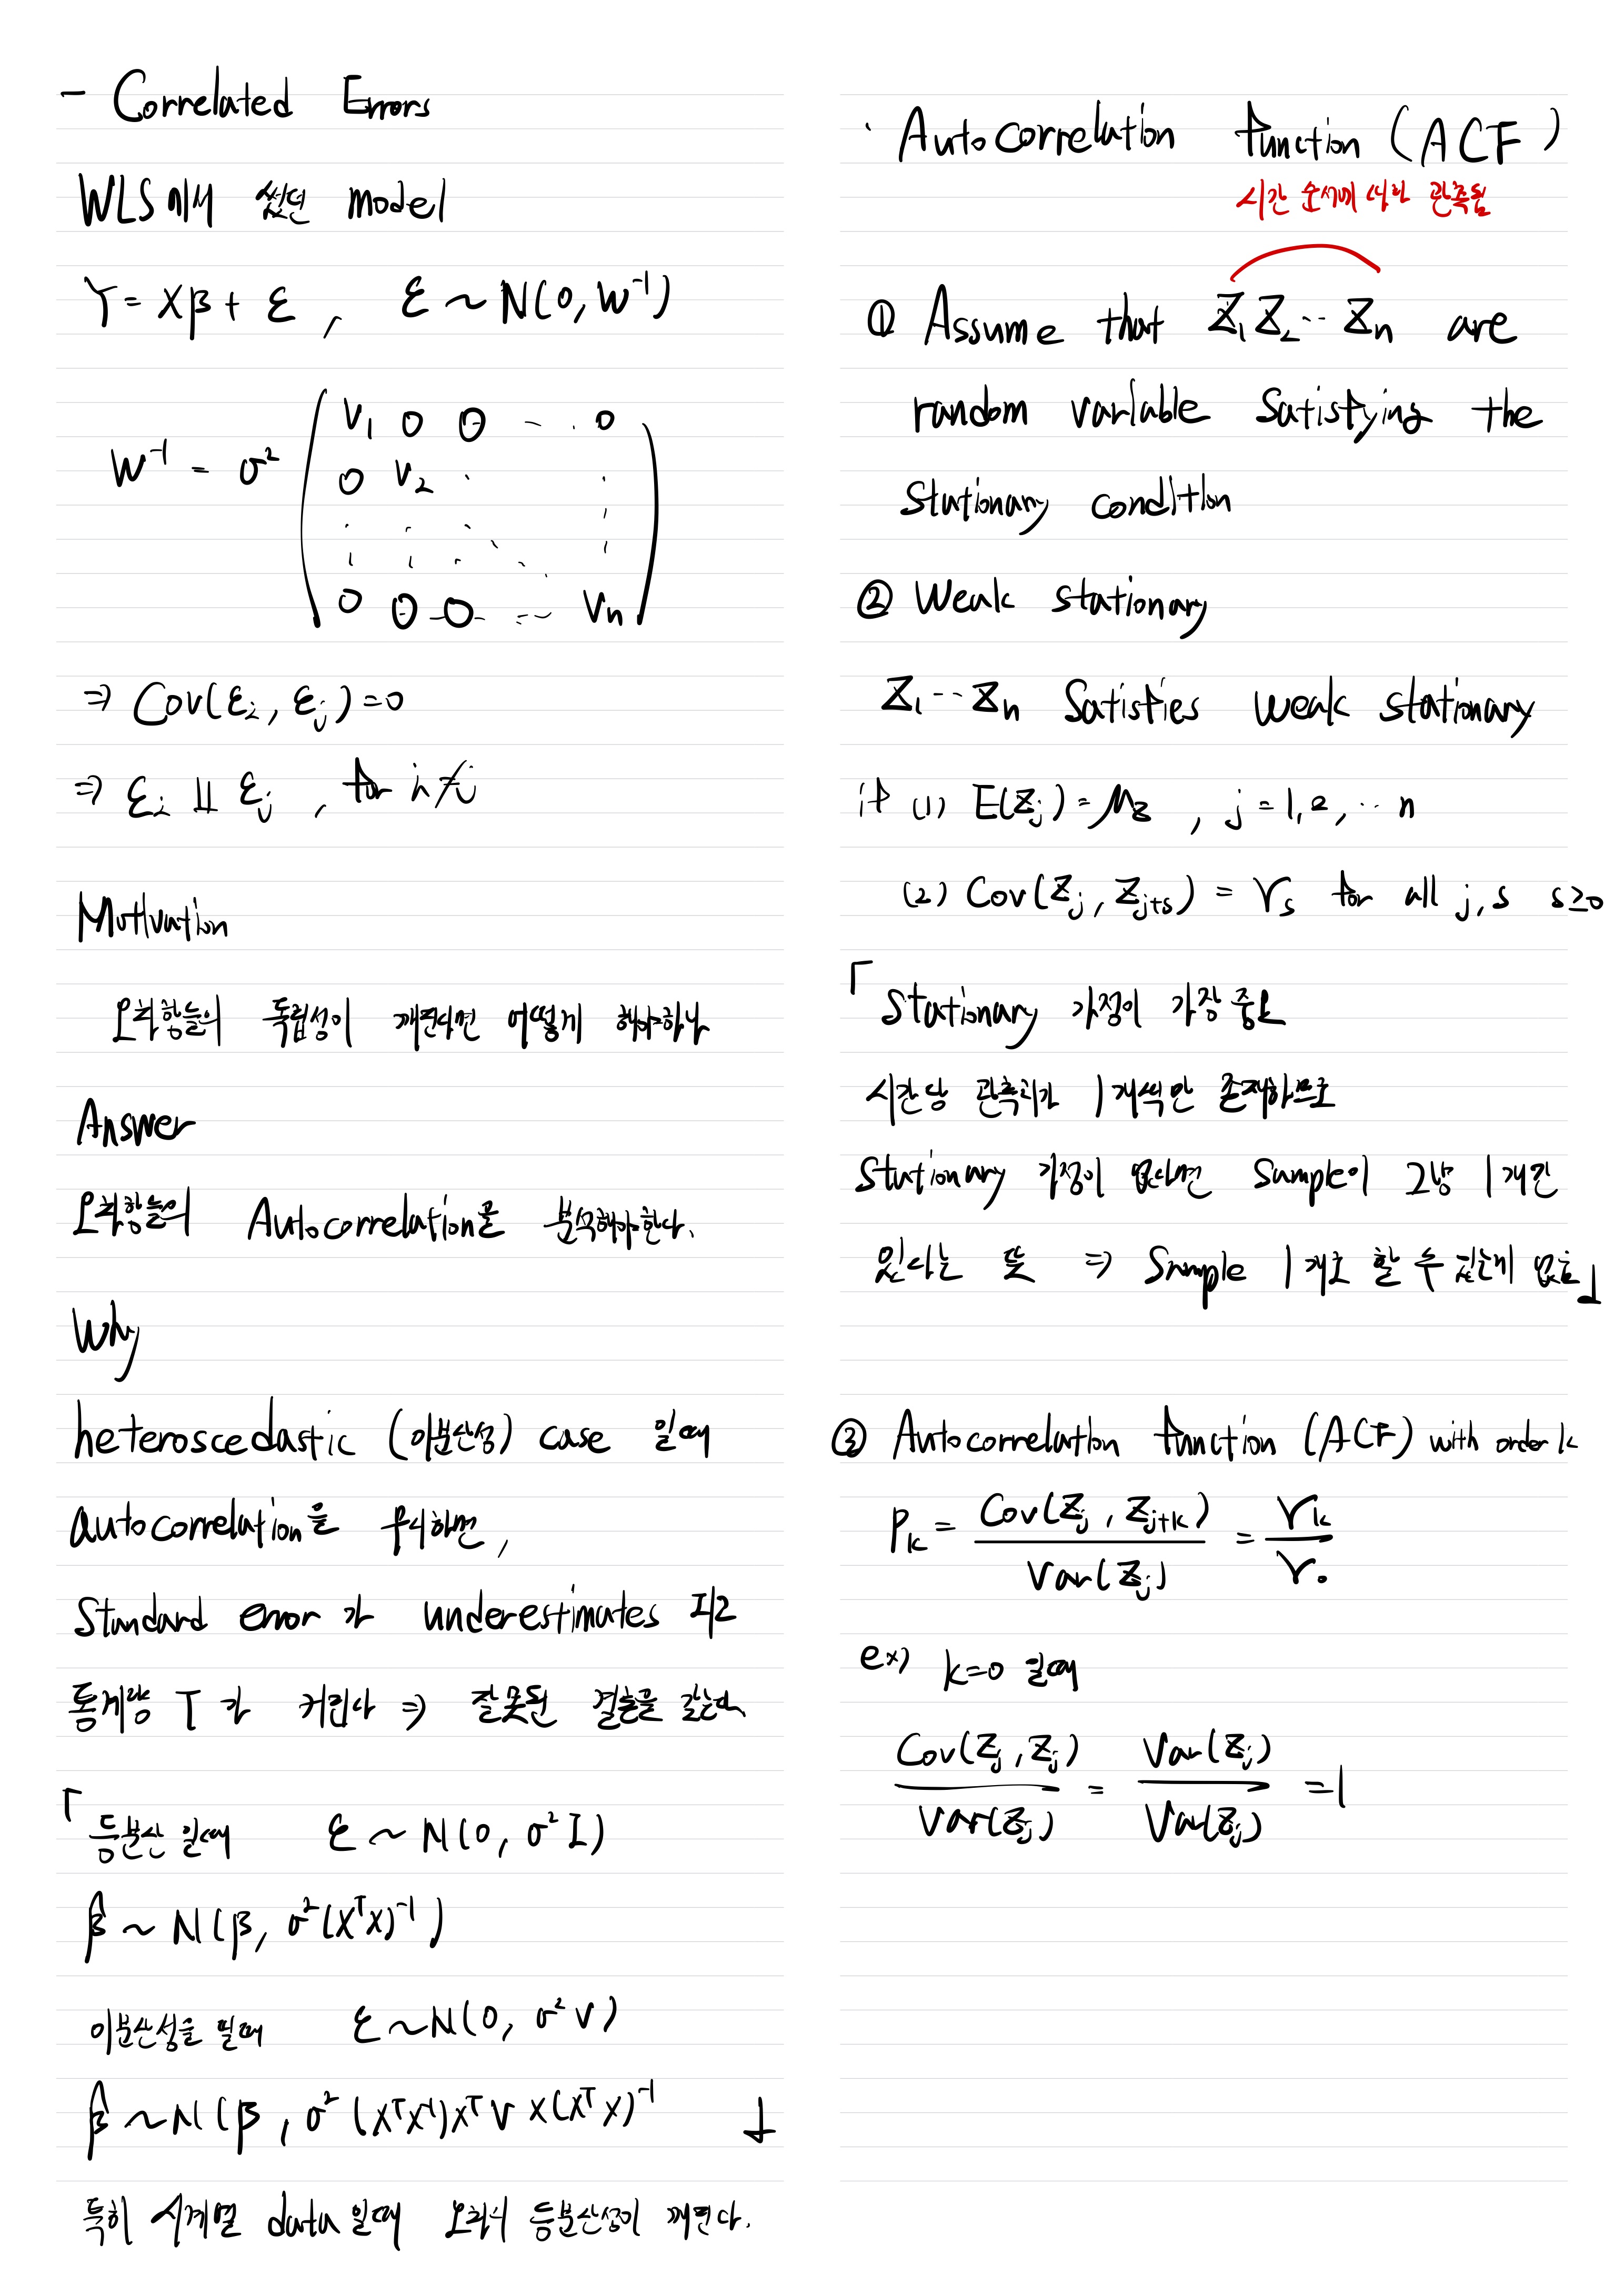 - Correlated Errors
WLS에서 썼던 model
Y = Xβ + ε , ε ~ N(0, W⁻¹)
W⁻¹ = σ² ( V₁ 0 0 ⋯ 0
0 V₂ ⋅ ⋮
⋮ ⋮ ⋱ ⋮
0 0 0 ⋯ Vₙ )
⇒ Cov(εᵢ, εⱼ) = 0
⇒ εᵢ ⫫ εⱼ , for i ≠ j
Motivation
오차항들의 독립성이 깨진다면 어떻게 해야하나
Answer
오차항들의 Autocorrelation을 분석해야한다.
Why
heteroscedastic (이분산성) case 일때
autocorrelation을 무시하면,
Standard error가 underestimates 되고
통계량 T가 커진다 ⇒ 잘못된 결론을 갖는다
「 등분산일때 ε ~ N(0, σ²I)
β̂ ~ N(β, σ²(XᵀX)⁻¹)
이분산성을 띌때 ε ~ N(0, σ²V)
β̂ ~ N(β, σ²(XᵀX⁻¹)XᵀVX(XᵀX)⁻¹ 」
특히 시계열 data일때 오차의 등분산성이 깨진다.
· Autocorrelation function (ACF)
시간 순서에 따라 관측됨
① Assume that Z₁ Z₂ ⋯ Zₙ are
random variable satisfying the
Stationary condition
② Weak stationary
Z₁ ⋯ Zₙ Satisfies weak stationary
if (1) E(Zⱼ) = μ_z , j = 1, 2, ⋯ n
(2) Cov(Zⱼ, Zⱼ₊ₛ) = γₛ for all j, s s≥0
「 Stationary 가정이 가장 중요
시간당 관측치가 1개씩만 존재하므로
Stationary 가정이 없다면 Sample이 그냥 1개만
있다는 뜻 ⇒ Sample 1개로 할 수 있는게 없음 」
③ Autocorrelation function (ACF) with order k
ρₖ = Cov(Zⱼ, Zⱼ₊ₖ) / Var(Zⱼ) = γₖ / γ₀
ex) k=0 일때
Cov(Zⱼ, Zⱼ) / Var(Zⱼ) = Var(Zⱼ) / Var(Zⱼ) = 1